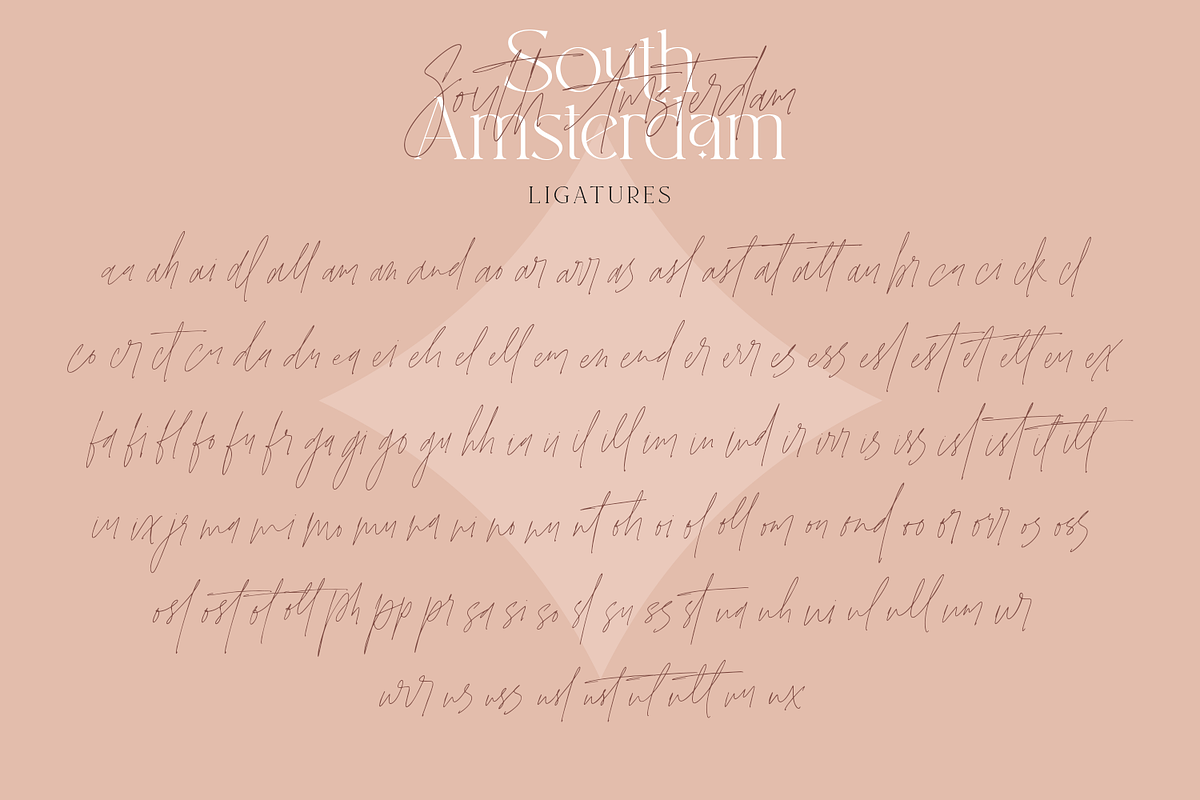 South
Amsterdam
South Amsterdam
LIGATURES
aa ah ai al all am an and ao ar arr as asl ast at att au br ca ci ck cl
co cr ct cu da du ea ei eh el ell em en end er err es ess esl est et ett eu ex
fa fi fl fo fu fr ga gi go gu hh ia ii il ill im in ind ir irr is iss isl ist it itt
iu ix jr ma mi mo mu na ni no nu nt oh oi ol oll om on ond oo or orr os oss
osl ost ot ott ph pp pr sa si so sl su ss st ua uh ui ul ull um ur
urr us uss usl ust ut utt uu ux